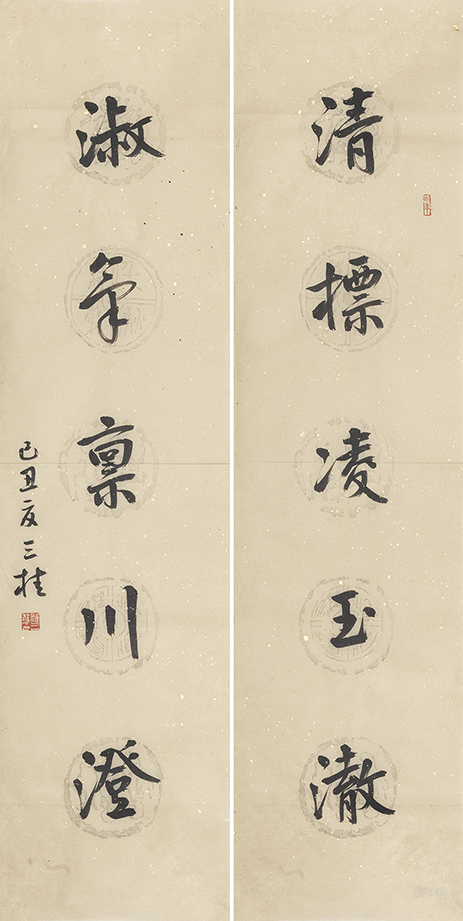 清標凌玉澈
淑氣禀川澄
己丑夏三桂